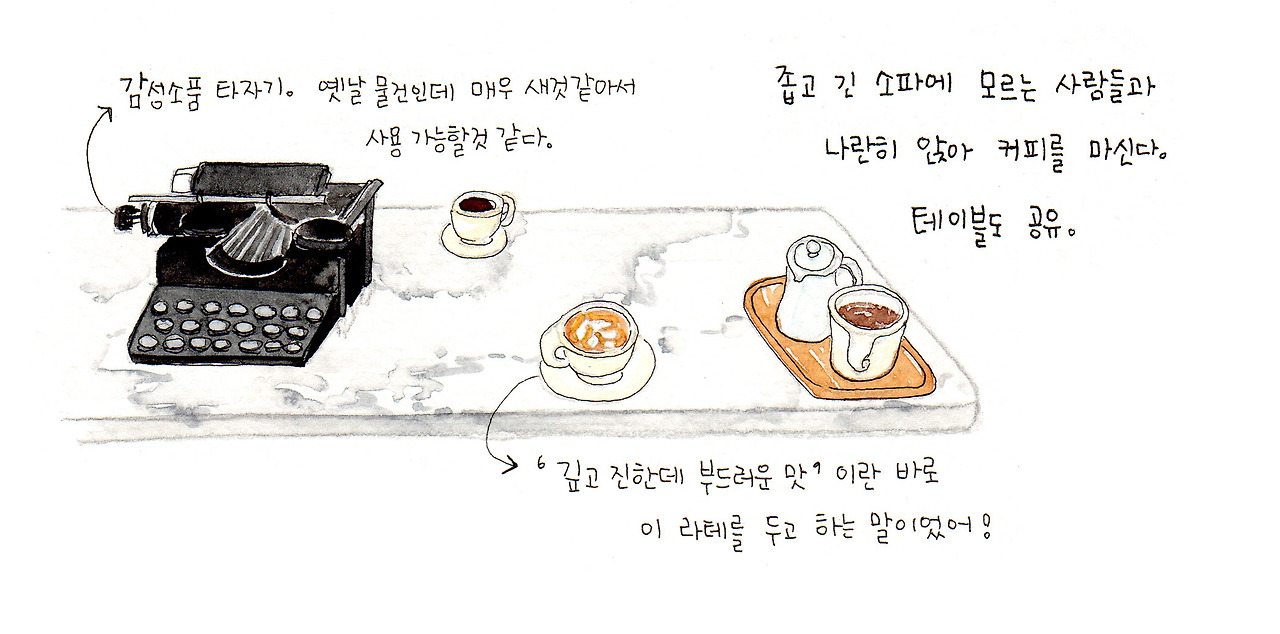 감성소품 타자기. 옛날 물건인데 매우 새것같아서
사용 가능할것 같다.
좁고 긴 소파에 모르는 사람들과
나란히 앉아 커피를 마신다.
테이블도 공유.
'깊고 진한데 부드러운 맛' 이란 바로
이 라테를 두고 하는 말이었어!